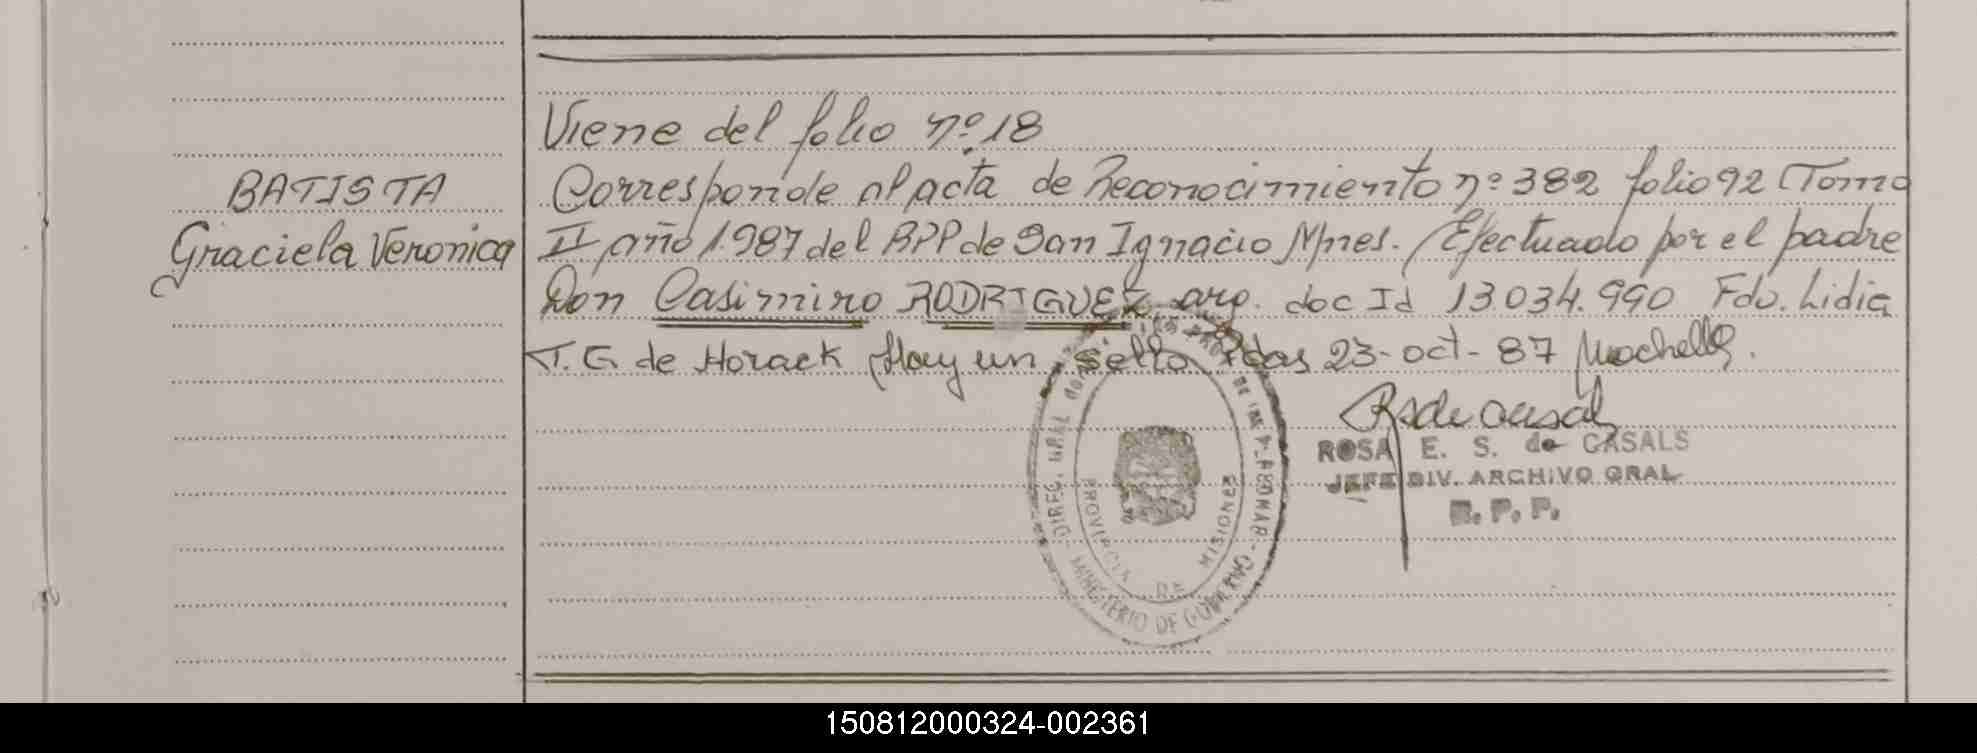 Viene del folio nº 18
BATISTA
Graciela Veronica
Corresponde al acta de Reconocimiento nº 382 folio 92 Tomo
II año 1.987 del RPP de San Ignacio Mnes. Efectuado por el padre
Don Casimiro RODRIGUEZ, arg. doc Id 13.034.990 Fdo. Lidia
T. G. de Horack Hay un sello Pdas 23-oct-87
ROSA E. S. de CASALS
JEFE DIV. ARCHIVO GRAL
R. P. P.
PROVINCIA DE MISIONES
MINISTERIO DE GOBIERNO
150812000324-002361